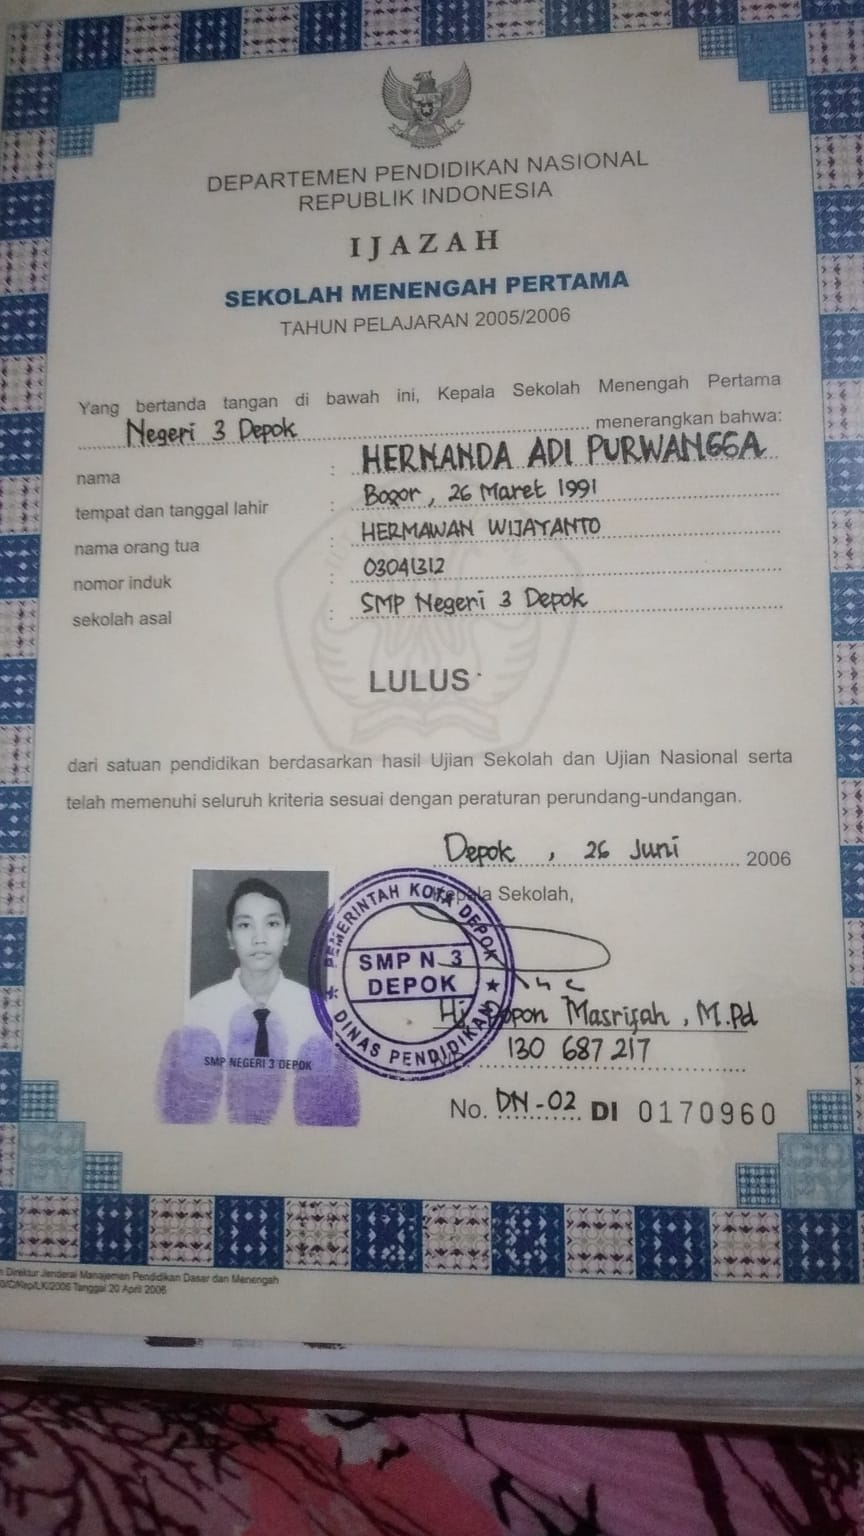 DEPARTEMEN PENDIDIKAN NASIONAL
REPUBLIK INDONESIA
IJAZAH
SEKOLAH MENENGAH PERTAMA
TAHUN PELAJARAN 2005/2006
Yang bertanda tangan di bawah ini, Kepala Sekolah Menengah Pertama
Negeri 3 Depok menerangkan bahwa:
nama : HERNANDA ADI PURWANGGA
tempat dan tanggal lahir : Bogor, 26 Maret 1991
nama orang tua : HERMAWAN WIJAYANTO
nomor induk : 03041312
sekolah asal : SMP Negeri 3 Depok
LULUS
dari satuan pendidikan berdasarkan hasil Ujian Sekolah dan Ujian Nasional serta
telah memenuhi seluruh kriteria sesuai dengan peraturan perundang-undangan.
Depok, 26 Juni 2006
Kepala Sekolah,
PEMERINTAH KOTA DEPOK
SMP N 3
DEPOK
DINAS PENDIDIKAN
Masriyah, M.Pd
130 687 217
SMP NEGERI 3 DEPOK
No. DN-02 DI 0170960
Direktur Jenderal Manajemen Pendidikan Dasar dan Menengah
/C/Kep/LK/2006 Tanggal 20 April 2006